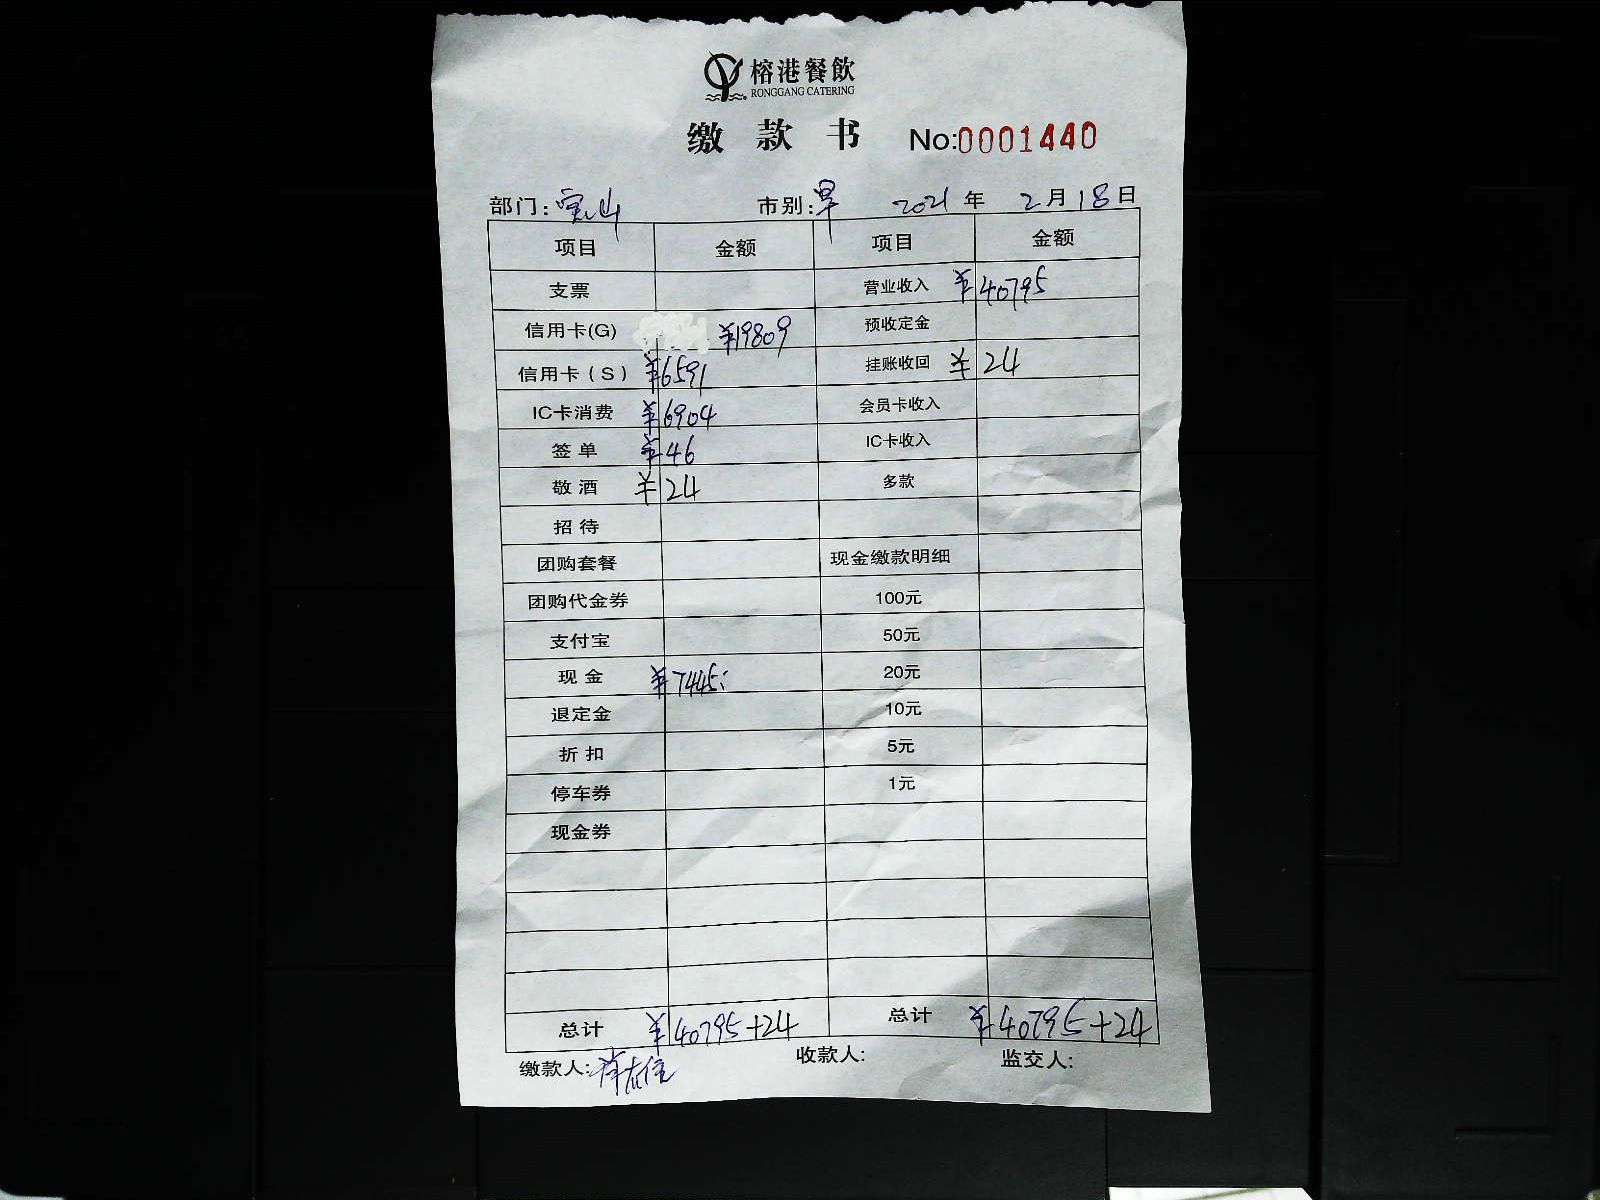 榕港餐飲
RONGGANG CATERING
缴款书 No:0001440
部门:宝山 市别:早 2021年2月18日
项目 金额 项目 金额
支票 营业收入 ¥40795
信用卡(G) ¥19809 预收定金
信用卡(S) ¥6591 挂账收回 ¥24
IC卡消费 ¥6904 会员卡收入
签单 ¥46 IC卡收入
敬酒 ¥24 多款
招待
团购套餐 现金缴款明细
团购代金券 100元
支付宝 50元
现金 ¥7445 20元
退定金 10元
折扣 5元
停车券 1元
现金券
总计 ¥40795+24 总计 ¥40795+24
缴款人: 收款人: 监交人: